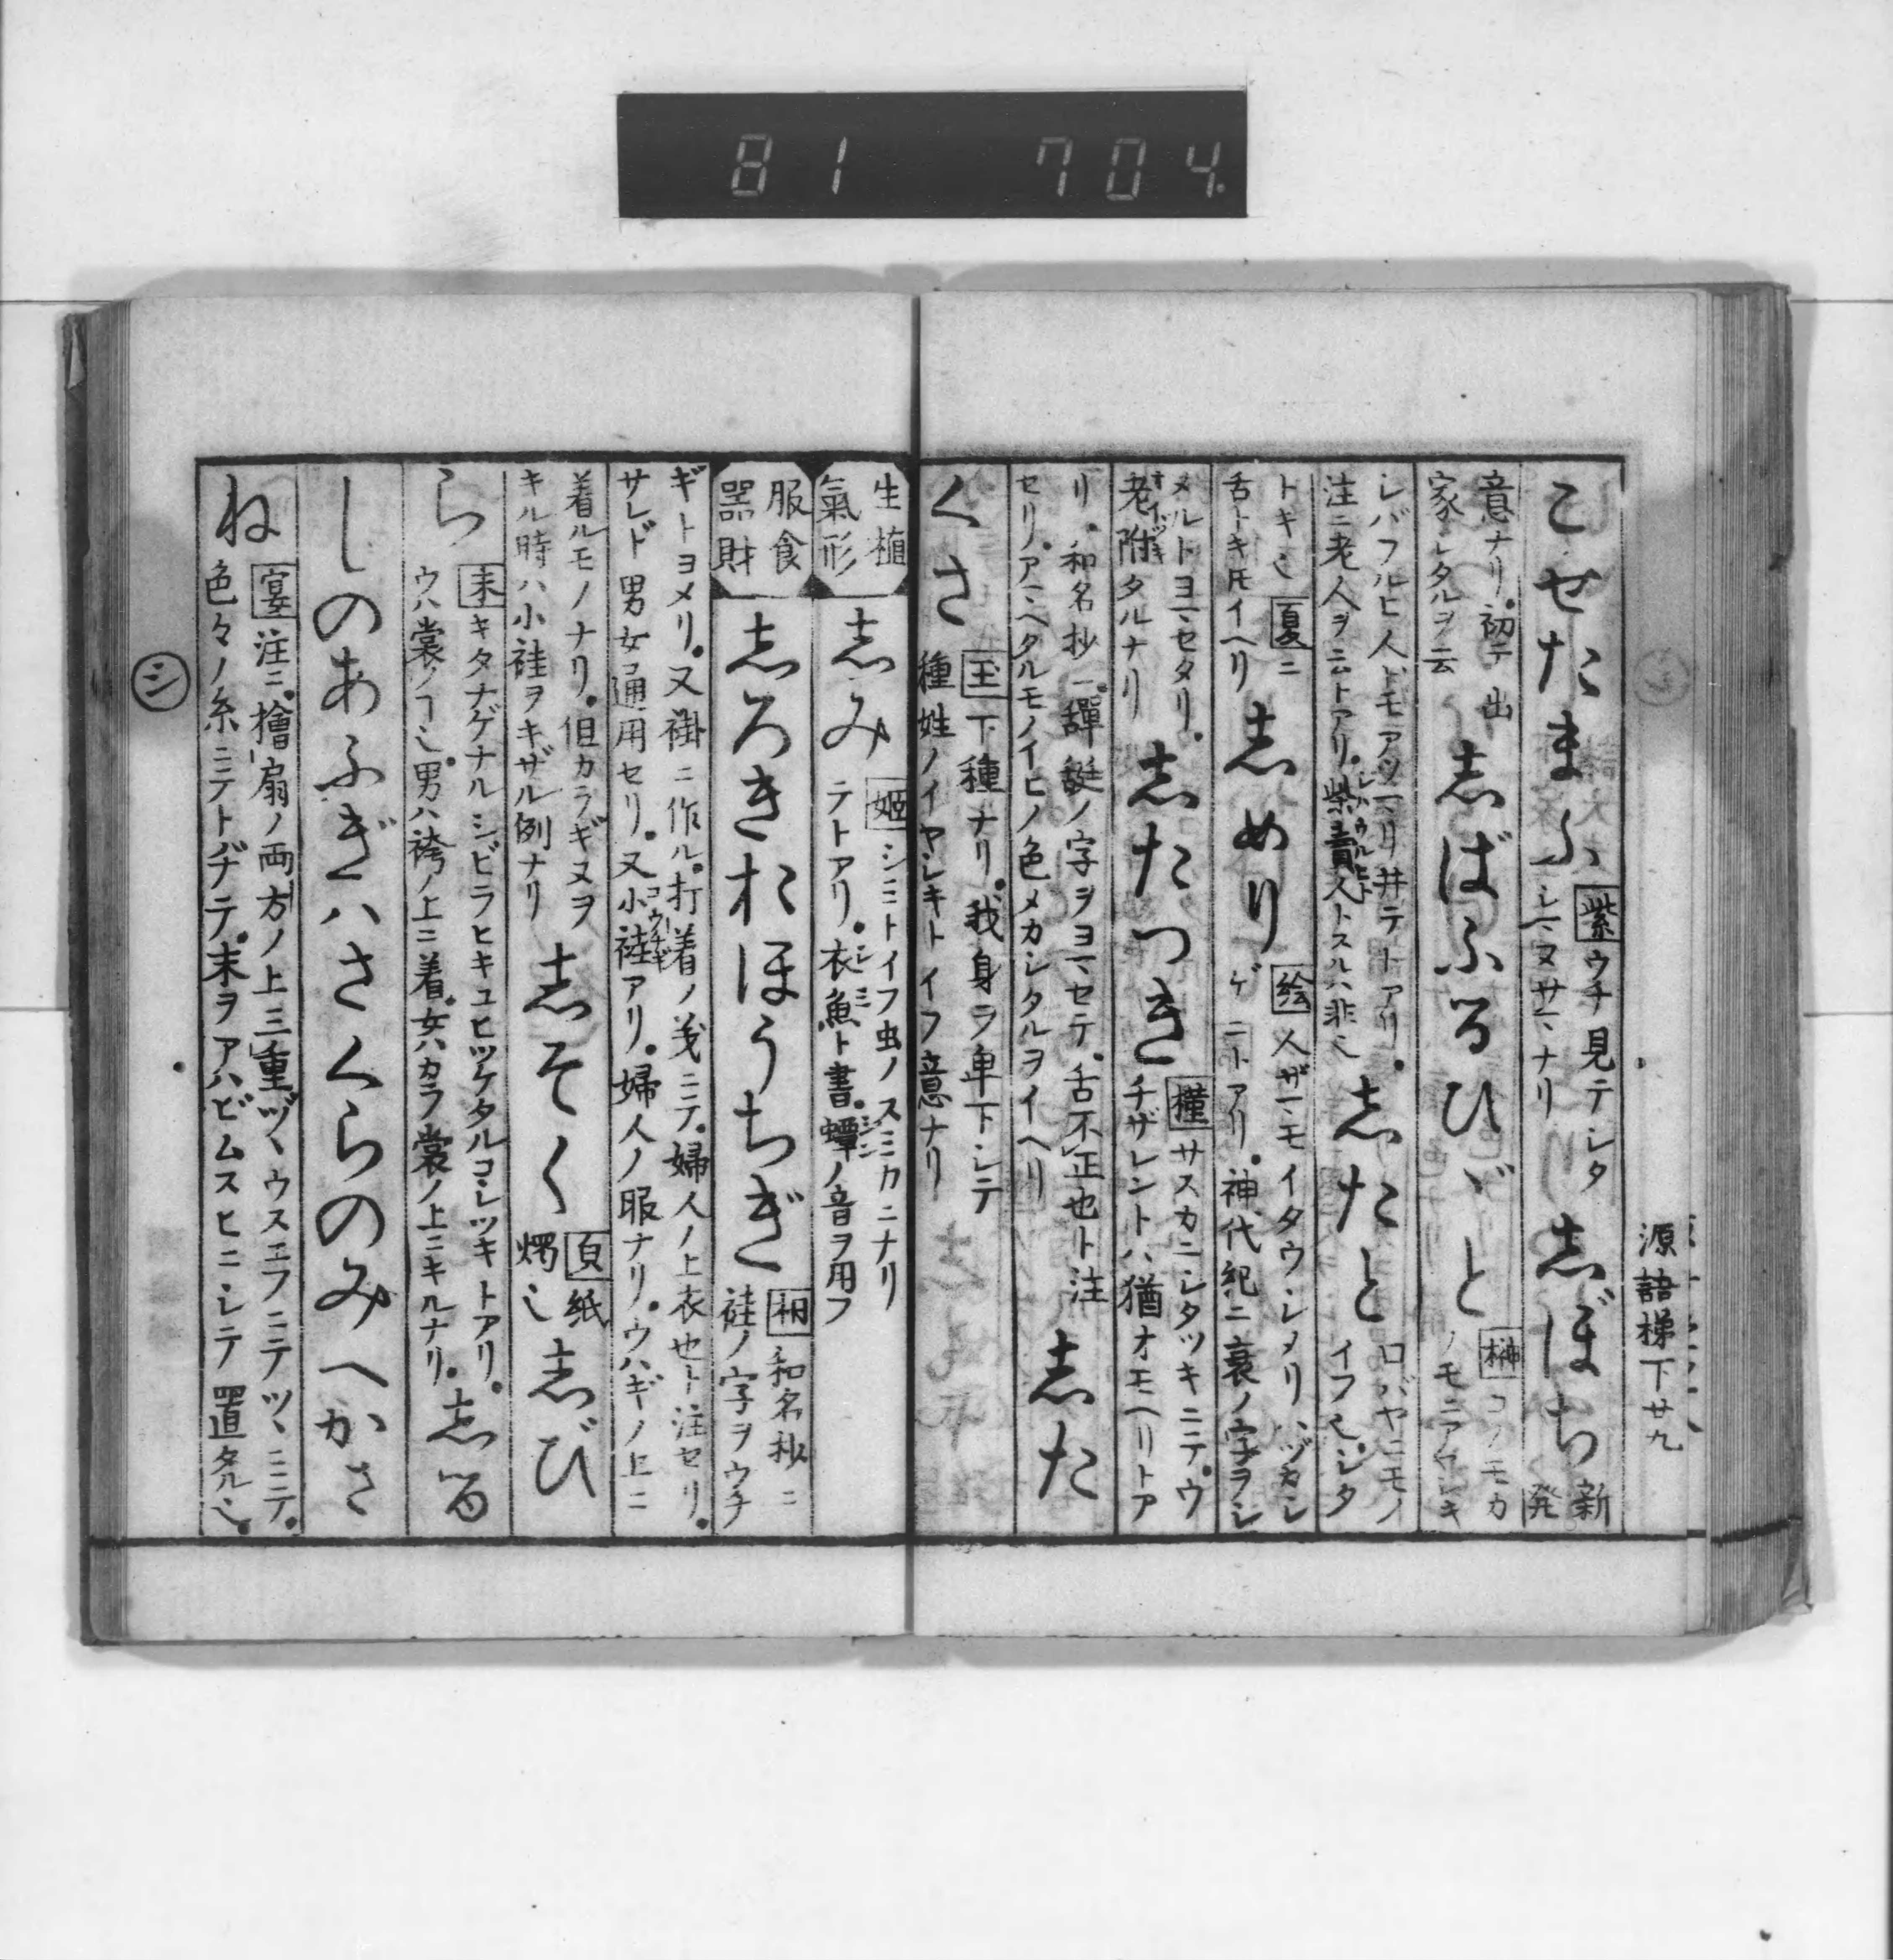 81 704
源語梯下廿九
こせたまふ 紫 ウチ見テシタ
シマヌサマナリ
志ぼち 新
発
意ナリ。初テ出
家シタルヲ云
志ばふるひゞと 榊 コノモカ
ノモニアヤシキ
シバフルヒ人ドモアツマリ井テトアリ。
注ニ老人ヲ云トアリ。柴責人トスルハ非也
志たと 口バヤニモノ
イフ也。シタ
トキ也 夏ニ
舌トキトモイヘリ
志めり 絵 人ザマモイタウシメリハヅカシ
ゲニトアリ。神代紀ニ衰ノ字ヲシ
メルトヨマセタリ。
老附タルナリ
志たつき 槿 サスカニシタツキニテ。ウ
チザレントハ猶オモヘリトア
リ。和名抄ニ。ノ字ヲヨマセテ。舌不正也ト注
セリ。アマヘタルモノイヒノ色メカシタルヲイヘリ
志た
くさ 玉 下種ナリ。我身ヲ卑下シテ
種姓ノイヤシキトイフ意ナリ
生植
氣形
志み 姫 シミトイフ虫ノスミカニナリ
テトアリ。衣魚ト書。蟫ノ音ヲ用フ
服食
器財
志ろきおほうちぎ 桐 和名抄ニ
袿ノ字ヲウチ
ギトヨメリ。又褂ニ作ル。打着ノ義ニテ。婦人ノ上衣也ト注セリ。
サレド男女通用セリ。又小袿アリ。婦人ノ服ナリ。ウハギノ上ニ
着ルモノナリ。但カラギヌヲ
キル時ハ小袿ヲキザル例ナリ
志そく 紙
燭也
志び
ら 末 キタナゲナルシビラヒキユヒツケタルコシツキトアリ。
ウハ裳ノヿ也。男ハ袴ノ上ニ着。女ハカラ裳ノ上ニキルナリ。
志る
しのあふぎハさくらのみへかさ
ね 宴 注ニ。檜扇ノ両方ノ上三重ヅヽウスエフニテツヽミテ。
色々ノ糸ニテトヂテ。末ヲアハビムスヒニシテ置タル也。
シ